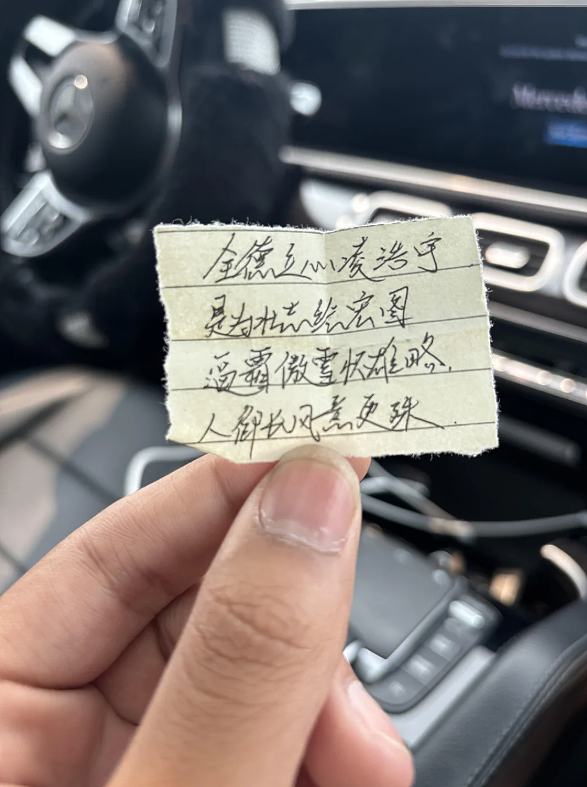 全德立心凌浩宇
是为壮志绘宏图
霸傲雪怀雄略.
人御长风意更殊.
Mercedes